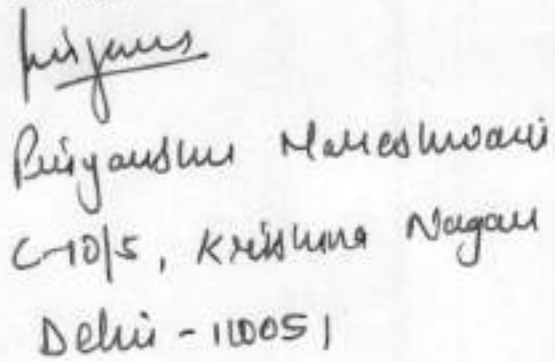 Priyanshu Maheshwari
C-10/5, Krishna Nagar
Delhi - 110051